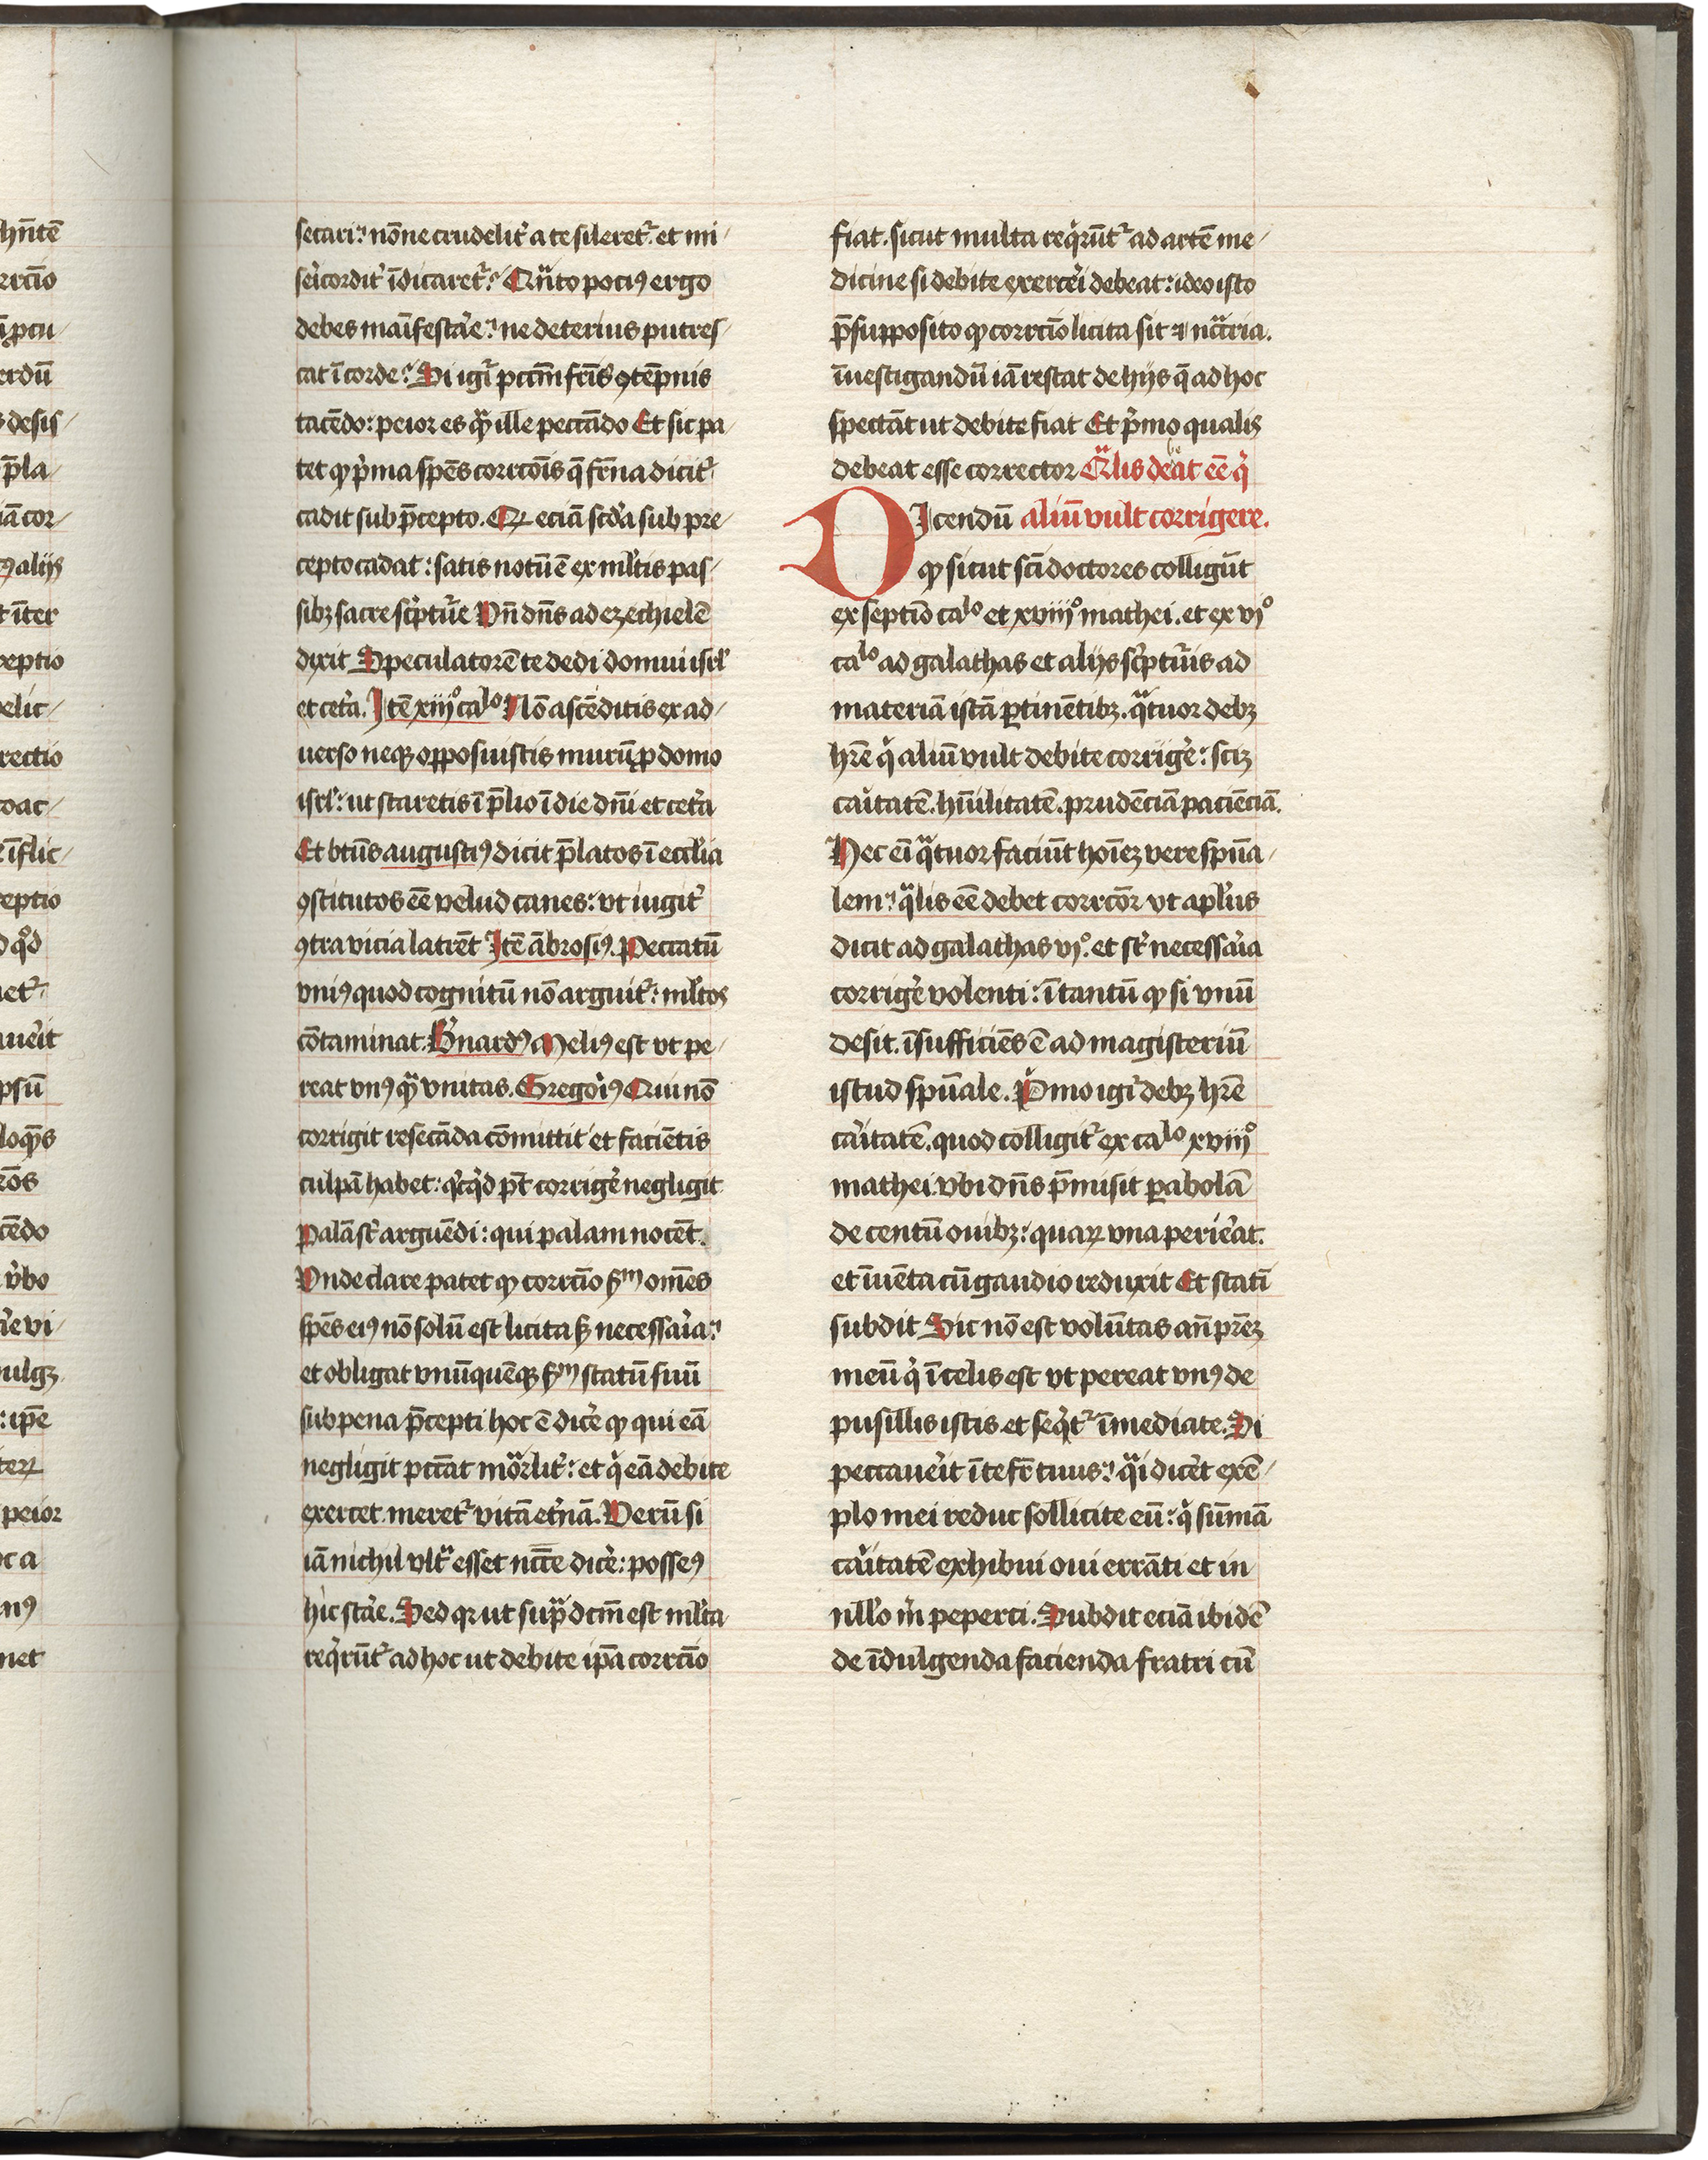 secari:' nōne crudelit᷑ a te sileret᷑: et mi/
sēicordit᷑ īdicaret᷑:' Qn̄to pociꝰ ergo
debes maīfestar̓e:' ne deterius putres/
cat ī corde:' Si igr̄ pctm̄ fr̄is ꝯtēpnis
tacēdo: peior es qͣꝫ ille peccādo Et sic pa/
tet ꝙ p̓ma spēs corrcōis q̄ fr̄na dicit᷑
cadit sub p̄cepto. Qꝛ eciā scd̓a sub pre/
cepto cadat: satis notū ē ex ml̓tis pas/
sibꝫ sacre sc̓ptur̓e Vn̄ dn̄s ad ezechielē
dixit Speculatorē te dedi domui isrl̓
et cet̓a. Itē xiijº caˡᵒ Nō ascēditis ex ad/
uerso neqꝫ opposuistis murū ꝓ domo
isrl̓: ut staretis ī p̄lio ī die dn̄i et cet̓a
Et btūs augustiꝰ dicit p̄latos ī eccl̓ia
ꝯstitutos eē velud canes: vt iugit᷑
ꝯtra vicia latrēt Itē ābrosiꝰ. Peccatū
vniꝰ quod cognitū nō arguit᷑: ml̓tos
cōtaminat. B̓nardꝰ Meliꝰ est vt pe/
reat vnꝰ qͣꝫ vnitas. Gregor̓iꝰ Qui nō
corrigit resecāda cōmittit et faciētis
culpā habet: qͥcqͥd pt̄ corriger̓e negligit
Palā st᷑ arguēdi: qui palam nocēt.
Vnde clare patet ꝙ corrcīo ẜm omēs
spēs eiꝰ nō solū est licita sꝫ necessar̓ia:'
et obligat vnūquēqꝫ ẜm statū suū
sub pena p̄cepti hoc ē dicer̓e ꝙ qui eā
negligit pctāt mōrlit᷑: et qͥ eā debite
exercet. meret᷑ vitā et̓nā. Verū si
iā nichil vltͣ esset nccē dicer̓e: posseꝰ
hic star̓e. Sed qꝛ ut supͣ dcm̄ est ml̓ta
reqͥrūt᷑ ad hoc ut debite ip̄a corrcīo
fiat. sicut multa reqͥrūt᷑ ad artē me/
dicine si debite exercēi debeat: ideo isto
p̄supposito ꝙ corrcīo licita sit ⁊ ncc̄ria.
īuestigandū iā restat de hijs q̄ ad hoc
spectāt ut debite fiat Et p̓mo qualis
debeat esse corrector Qͣlis debeat eē qͥ
DIcendū aliū vult corrigere.
ꝙ sicut sc̄i doctores colligūt
ex septīo caˡᵒ et xviijº mathei. et ex vjº
caˡᵒ ad galathas et alijs sc̓ptur̓is ad
materiā istā ꝑtinētibꝫ. qͣtuor debꝫ
hr̄e qͥ aliū vult debite corriger̓e: scꝫ
car̓itatē. hūilitatē. prudēciā paciēciā.
Hec ei̅ qͣtuor faciūt hoi̅eꝫ vere spūa/
lem:' qͣlis eē debet corrcōr vt apl̓us
dicit ad galathas vjº. et st᷑ necessar̓ia
corriger̓e volenti: ī tantū ꝙ si vnū
desit. īsufficiēs ē ad magisteriū
istud spūale. Pͥmo igr̄ debꝫ hr̄e
car̓itatē. quod colligit᷑ ex caˡᵒ xviijº
mathei. vbi dn̄s p̄misit ꝑabolā
de centū ouibꝫ: quaꝝ vna perier̓at.
et īuēta cū gaudio reduxit Et statī
subdit Sic nō est volūtas an̄ pr̄eꝫ
meū qͥ ī celis est vt pereat vnꝰ de
pusillis istis. et seqͥt᷑ īmediate. Si
peccauer̓it ī te fr̄ tuus:' qͣi dicer̓et exē/
plo mei reduc sollicite eū: qͥ sūmā
car̓itatē exhibui oui errāti et in
nll̓o m̓ peperci. Subdit eciā ibidē
de īdulgenda facienda fratri cū